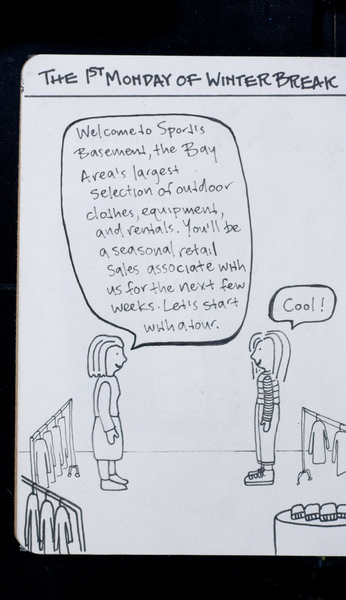 THE 1ST MONDAY OF WINTER BREAK
Welcome to Sport's
Basement, the Bay
Area's largest
selection of outdoor
clothes, equipment,
and rentals. You'll be
a seasonal retail
sales associate with
us for the next few
weeks. Let's start
with a tour.
Cool!